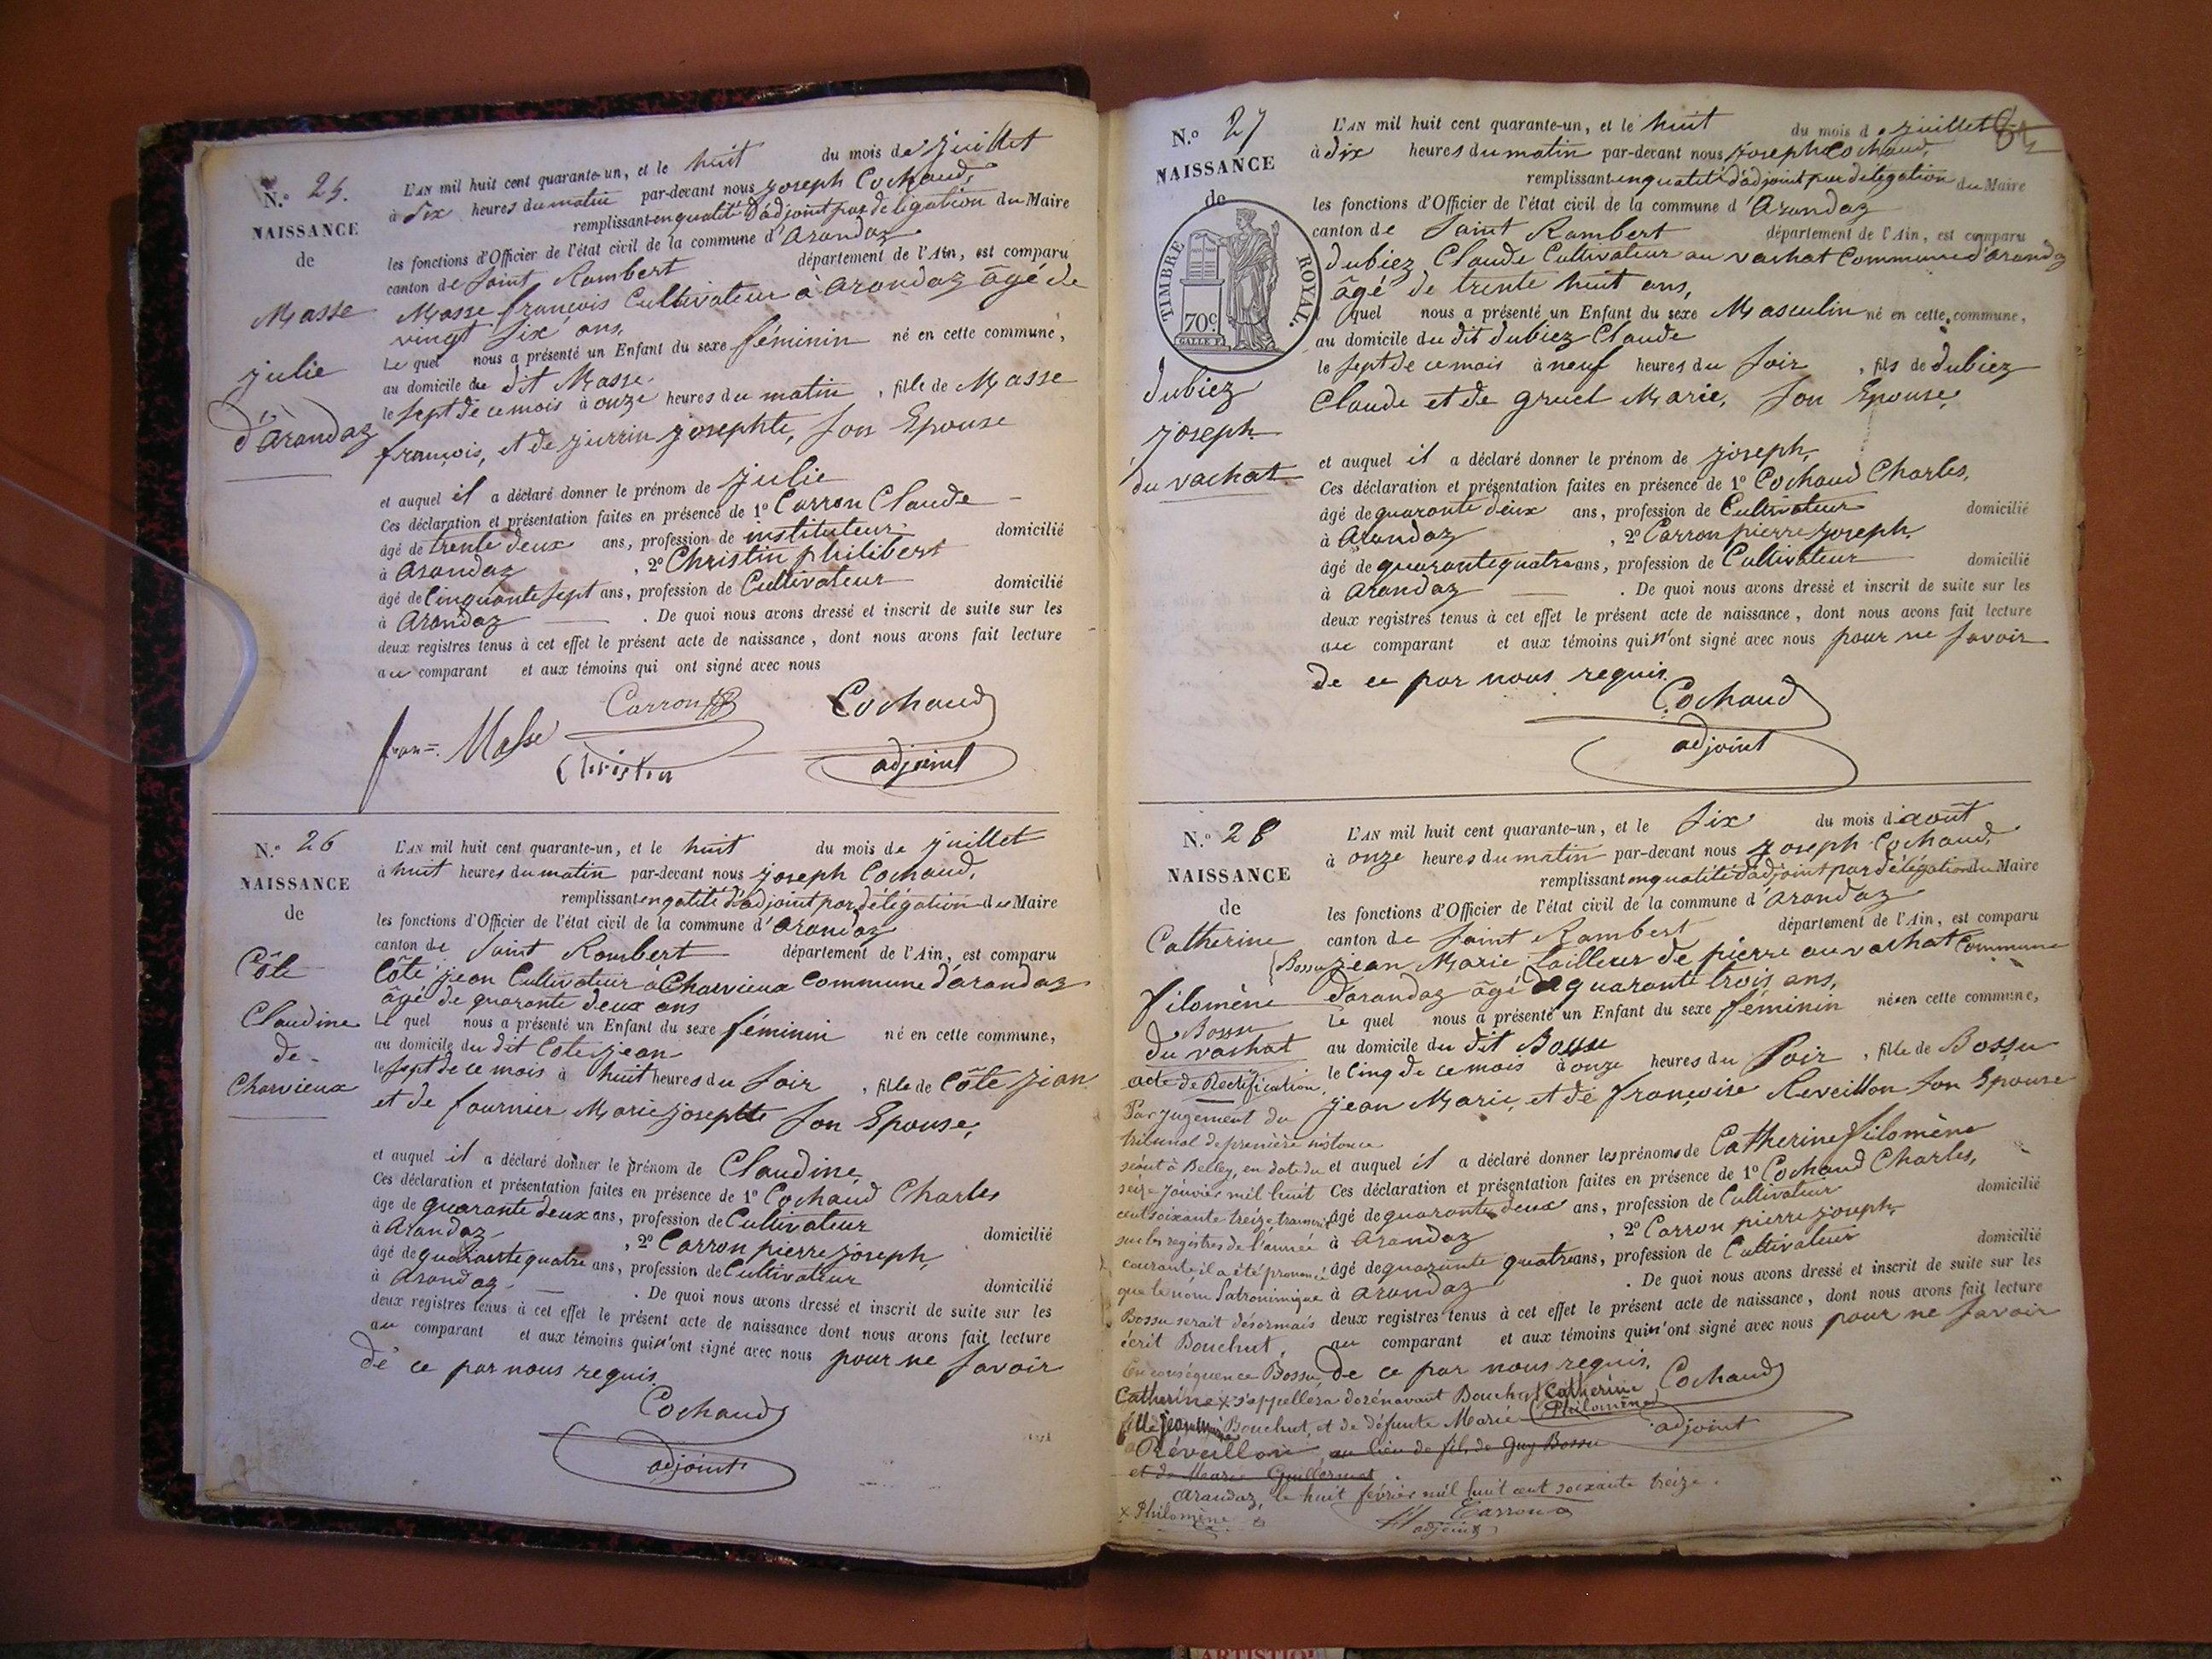 N.° 25.
NAISSANCE
de
Masse
julie
d'Arandaz
L'AN mil huit cent quarante-un, et le huit du mois de juillet
à Six heures du matin par-devant nous joseph Cochaud,
remplissant en qualité d'adjoint par délégation du Maire
les fonctions d'Officier de l'état civil de la commune d'Arandaz
canton de Saint Rambert département de l'Ain, est comparu
Masse françois Cultivateur à Arandaz âgé de
vingt six ans,
Le quel nous a présenté un Enfant du sexe féminin né en cette commune,
au domicile du dit Masse.
le Sept de ce mois à onze heures du matin, fille de Masse
françois, et de jurrin josephte, Son Epouse
et auquel il a déclaré donner le prénom de julie
Ces déclaration et présentation faites en présence de 1° Carron Claude
âgé de trente deux ans, profession de instituteur domicilié
à Arandaz, 2° Christin philibert
âgé de Cinquante Sept ans, profession de Cultivateur domicilié
à Arandaz. De quoi nous avons dressé et inscrit de suite sur les
deux registres tenus à cet effet le présent acte de naissance, dont nous avons fait lecture
au comparant et aux témoins qui ont signé avec nous
Carron Cochaud
fran= Masse Christin adjoint
N.° 26
NAISSANCE
de
Côte
Claudine
de
Charvieux
L'AN mil huit cent quarante-un, et le huit du mois de juillet
à huit heures du matin par-devant nous joseph Cochaud,
remplissant en qalité d'adjoint par délégation du Maire
les fonctions d'Officier de l'état civil de la commune d'Arandaz
canton de Saint Rambert département de l'Ain, est comparu
Côte jean Cultivateur à Charvieux Commune d'arandaz
âgé de quarante deux ans
Le quel nous a présenté un Enfant du sexe féminin né en cette commune,
au domicile du dit Cote jean
le Sept de ce mois à huit heures du Soir, fille de Côte jean
et de fournier Marie josephte Son Epouse,
et auquel il a déclaré donner le prénom de Claudine,
Ces déclaration et présentation faites en présence de 1° Cochaud Charles
âgé de quarante deux ans, profession de Cultivateur
à Arandaz, 2° Carron pierre joseph, domicilié
âgé de quarante quatre ans, profession de Cultivateur
à Arandaz domicilié
. De quoi nous avons dressé et inscrit de suite sur les
deux registres tenus à cet effet le présent acte de naissance dont nous avons fait lecture
au comparant et aux témoins qui n'ont signé avec nous pour ne Savoir
de ce par nous requis.
Cochaud
adjoint
N.° 27
NAISSANCE
de
TIMBRE ROYAL.
70c.
dubiez
joseph
du vachat
L'AN mil huit cent quarante-un, et le huit du mois de juillet
à dix heures du matin par-devant nous joseph Cochaud,
remplissant en qualité d'adjoint par délégation du Maire
les fonctions d'Officier de l'état civil de la commune d'Arandaz
canton de Saint Rambert département de l'Ain, est comparu
dubiez Claude Cultivateur au vachat Commune d'arandaz
âgé de trente huit ans,
quel nous a présenté un Enfant du sexe Masculin né en cette commune,
au domicile du dit dubiez Claude
le Sept de ce mois à neuf heures du Soir, fils de dubiez
Claude et de gruel Marie, Son Epouse,
et auquel il a déclaré donner le prénom de joseph,
Ces déclaration et présentation faites en présence de 1° Cochaud Charles,
âgé de quarante deux ans, profession de Cultivateur domicilié
à Arandaz, 2° Carron pierre joseph,
âgé de quarante quatre ans, profession de Cultivateur domicilié
à Arandaz. De quoi nous avons dressé et inscrit de suite sur les
deux registres tenus à cet effet le présent acte de naissance, dont nous avons fait lecture
au comparant et aux témoins qui n'ont signé avec nous pour ne Savoir
de ce par nous requis.
Cochaud
adjoint
N.° 28
NAISSANCE
de
Catherine
filomène
Bossu
du vachat
acte de Rectification.
Par jugement du
tribunal de première instance
séant à Belley, en date du
seize janvier mil huit
cent soixante treize transcrit
sur les registres de l'année
courante, il a été prononcé
que le nom Patronimique
Bossu serait désormais
écrit Bouchut.
En conséquence Bossu
Catherine x s'appellera dorénavant Bouchut Catherine Philomène
fille jean marie Bouchut, et de défunte Marie
Réveillon, au lieu de fils de Guy Bossu
et de Marie Guillermet.
Arandaz, le huit février mil huit cent soixante treize.
x Philomène
Carron
adjoint
L'AN mil huit cent quarante-un, et le Six du mois d'août
à onze heures du matin par-devant nous joseph Cochaud,
remplissant en qualité d'adjoint par délégation du Maire
les fonctions d'Officier de l'état civil de la commune d'Arandaz
canton de Saint Rambert département de l'Ain, est comparu
Bossu jean Marie tailleur de pierre au vachat Commune
d'arandaz âgé de quarante trois ans,
Le quel nous a présenté un Enfant du sexe féminin née en cette commune,
au domicile du dit Bossu
le Cinq de ce mois à onze heures du Soir, fille de Bossu
jean Marie, et de françoise Reveillon Son Epouse
et auquel il a déclaré donner les prénoms de Catherine filomène
Ces déclaration et présentation faites en présence de 1° Cochaud Charles,
âgé de quarante deux ans, profession de Cultivateur domicilié
à Arandaz, 2° Carron pierre joseph,
âgé de quarante quatre ans, profession de Cultivateur domicilié
à Arandaz. De quoi nous avons dressé et inscrit de suite sur les
deux registres tenus à cet effet le présent acte de naissance, dont nous avons fait lecture
au comparant et aux témoins qui n'ont signé avec nous pour ne Savoir
de ce par nous requis.
Cochaud
adjoint